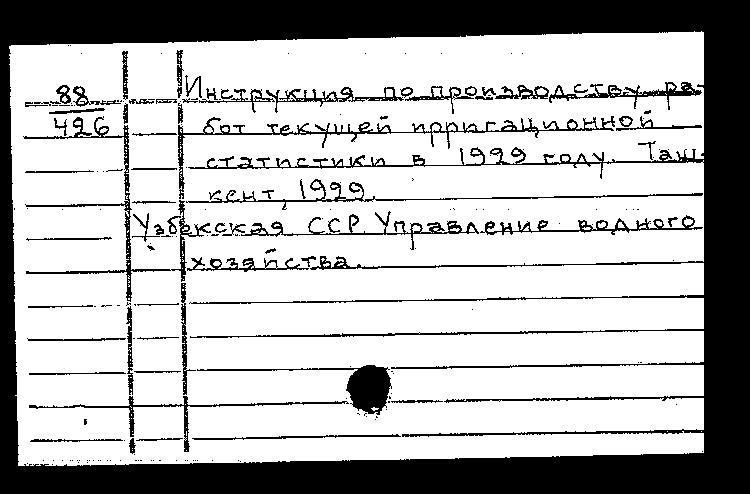 88
426
Инструкция по производству ра-
бот текущей ирригационной
статистики в 1929 году. Таш-
кент, 1929.
Узбекская ССР. Управление водного
хозяйства.